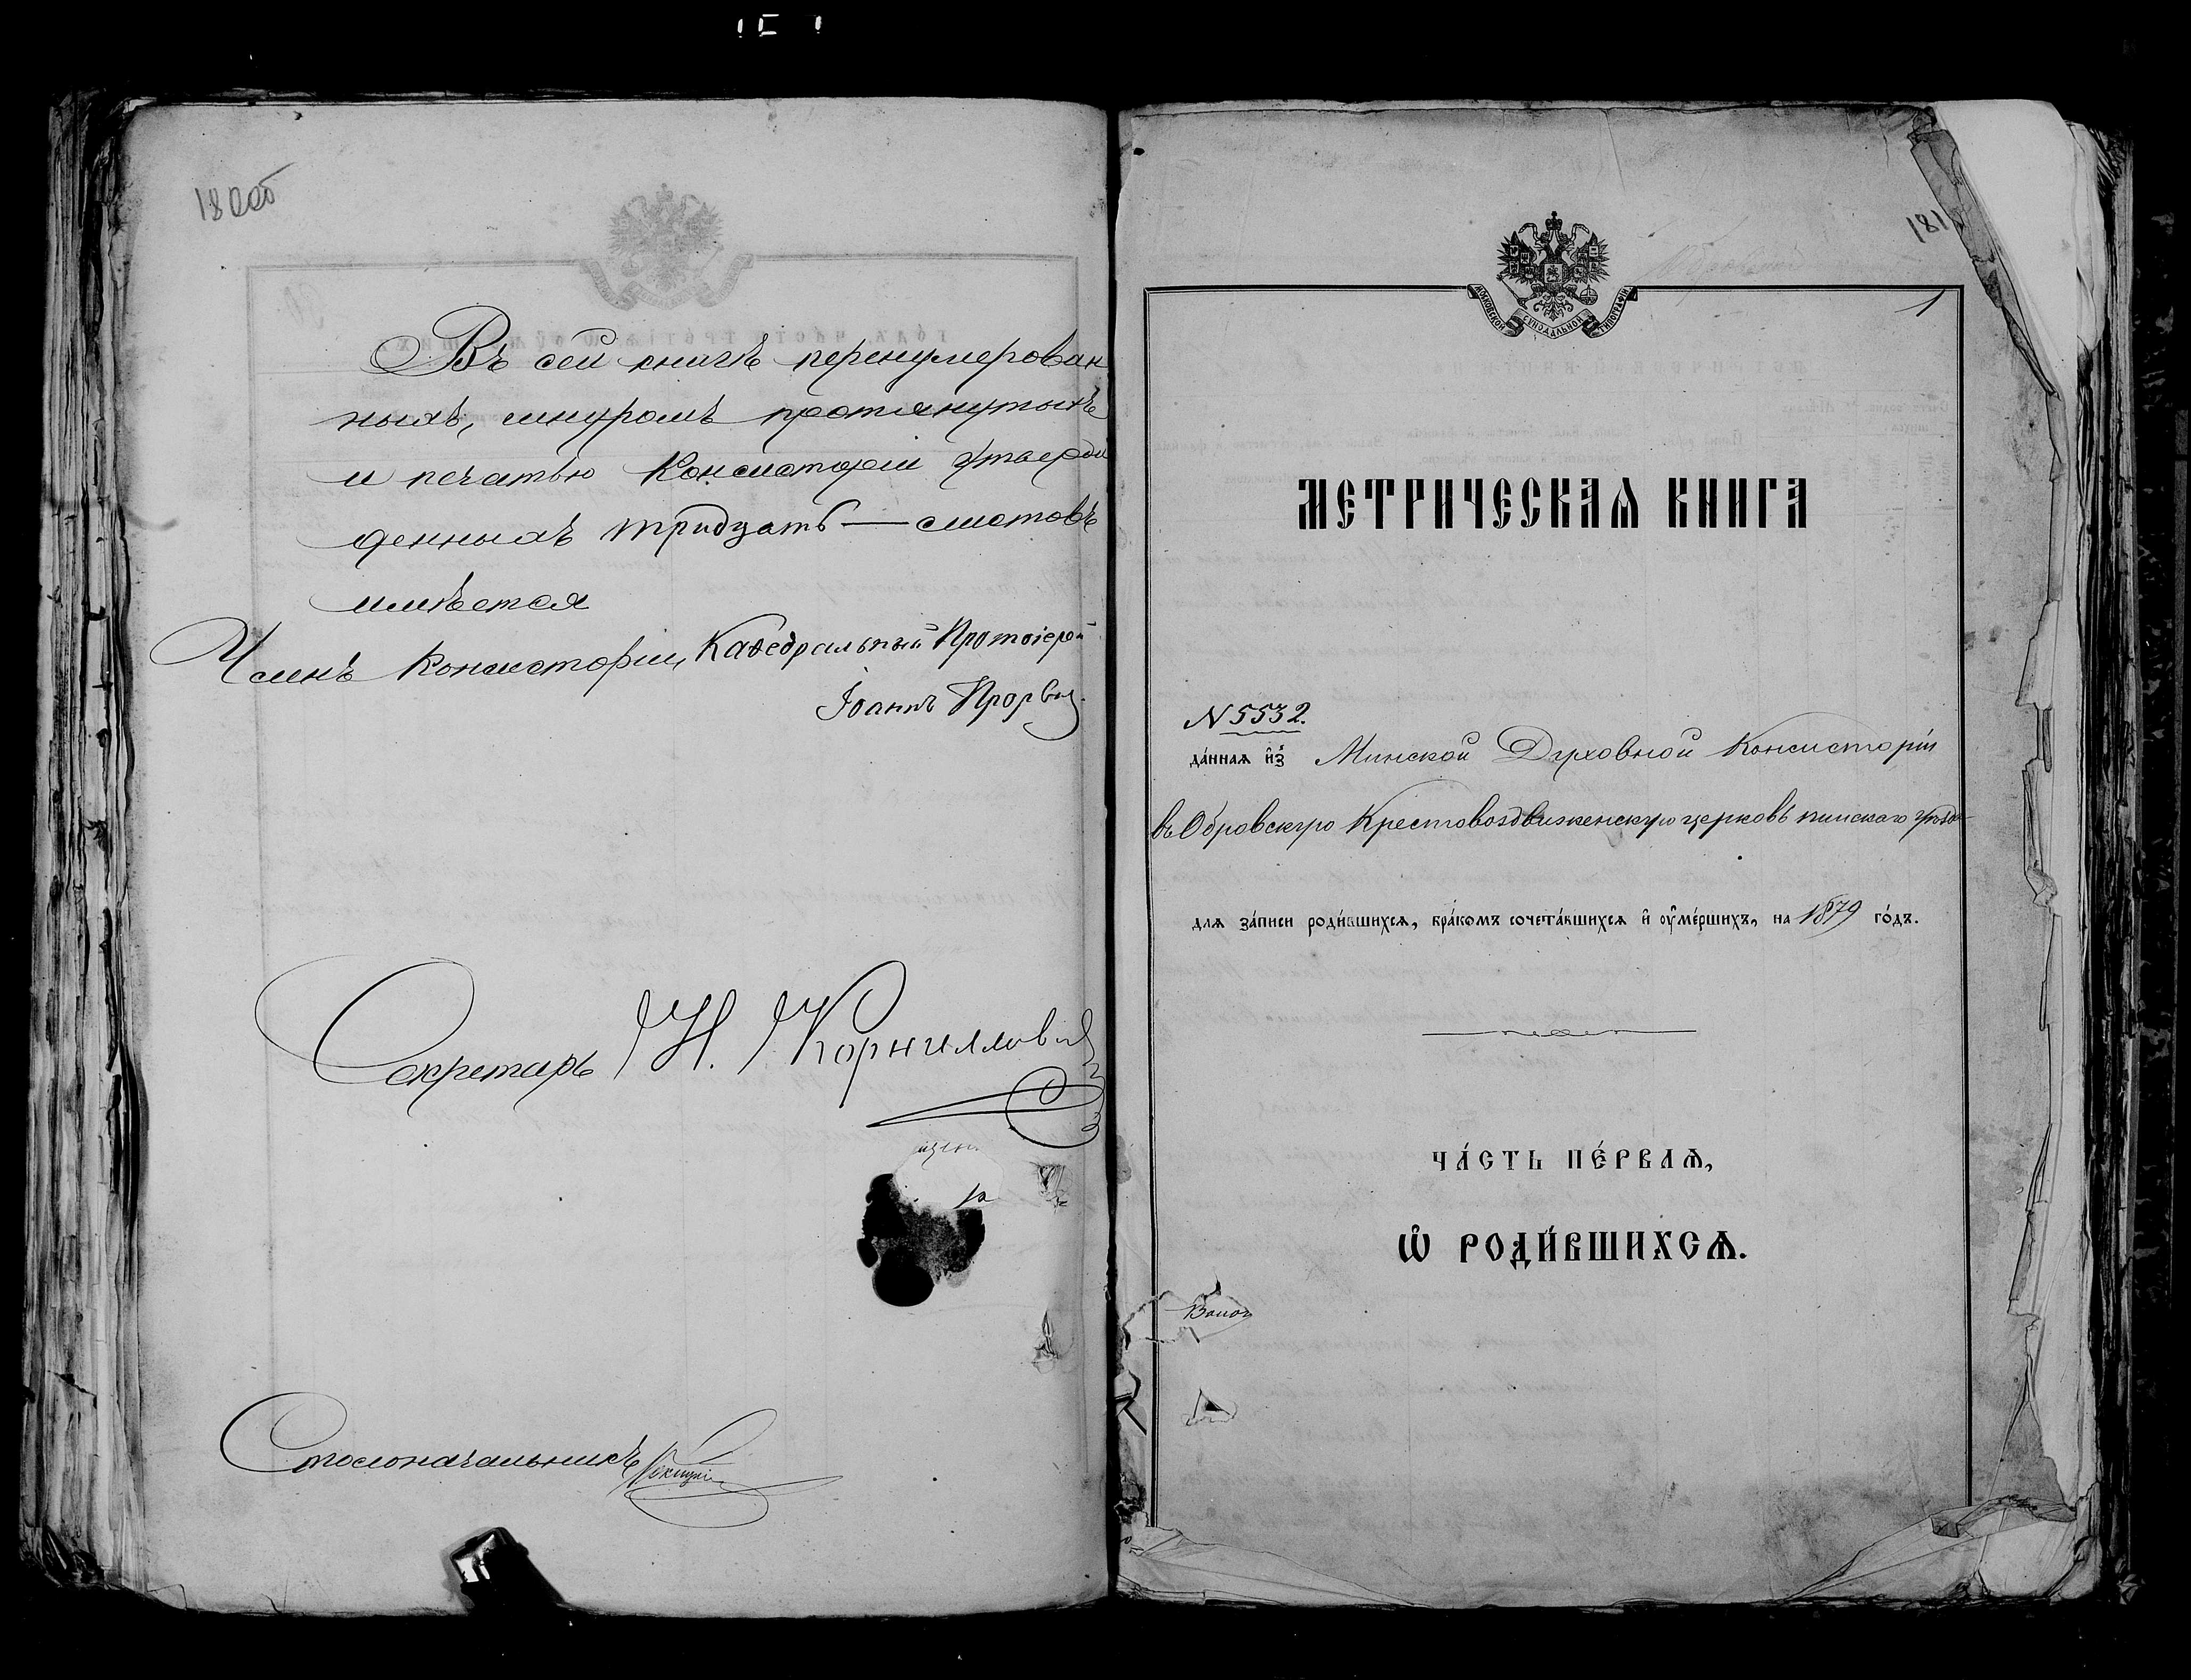 180об
Въ сей книгѣ перенумерован
ныхъ, шнуромъ протянутыхъ
и печатью Консисторіи утверж
денныхъ тридцать — листовъ
имѣется
Членъ Консисторіи, Каѳедральный Протоіерей
Іоаннъ
Секретарь Н. Корниллович
Столоначальникъ
181
1
МОСКОВСКОЙ СѴНОДАЛЬНОЙ ТИПОГРАФІИ
МЕТРИЧЕСКАѦ КНИГА
N 5532.
да́ннаѧ и҆з̾ Минской Духовной Консисторіи
въ Обровскую Крестовоздвиженскую церковь пинскаго уѣзда
для за́писи роди́вшихсѧ, бра́комъ сочета́вшихсѧ и҆ оу҆ме́ршихъ, на 1879 го́дъ.
ЧА́СТЬ ПЕ́РВАѦ,
Ѡ҆ РОДИ́ВШИХСѦ.